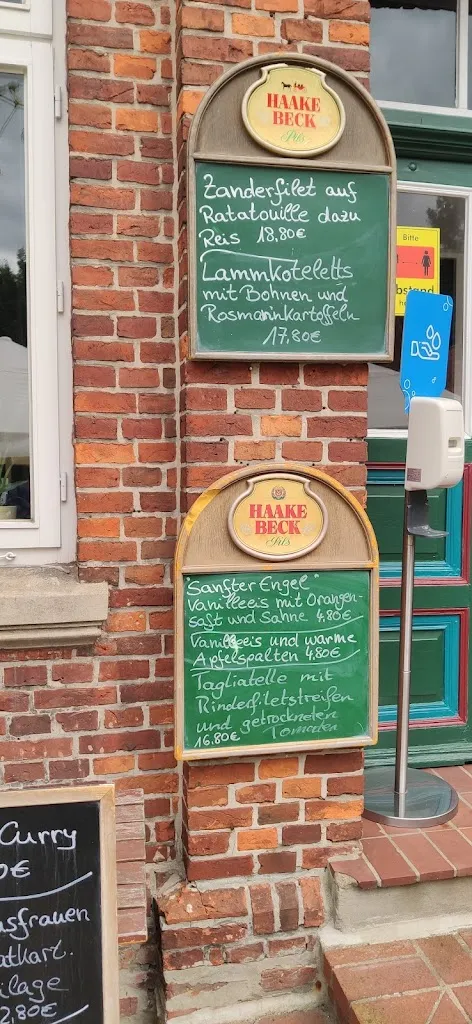 HAAKE
BECK
Pils
Zanderfilet auf
Ratatouille dazu
Reis 18,80€
Lammkoteletts
mit Bohnen und
Rosmarinkartoffeln
17,80€
Bitte
bstand
HAAKE
BECK
Pils
Sanfter Engel"
Vanilleeis mit Orangen-
saft und Sahne 4,80€
Vanilleeis und warme
Apfelspalten 4,80€
Tagliatelle mit
Rinderfiletstreifen
und getrockneten
Tomaten
16,80€
Curry
0€
sfrauen
atkart.
ilage
2,80€